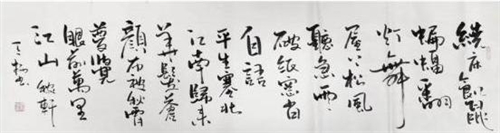 繞床飢鼠
蝙蝠翻
燈舞
屋上松風
吹急雨
破紙窗間
自語
平生塞北
江南歸來
華髮蒼
顏布被秋宵
夢覺
眼前萬里
江山 稼軒